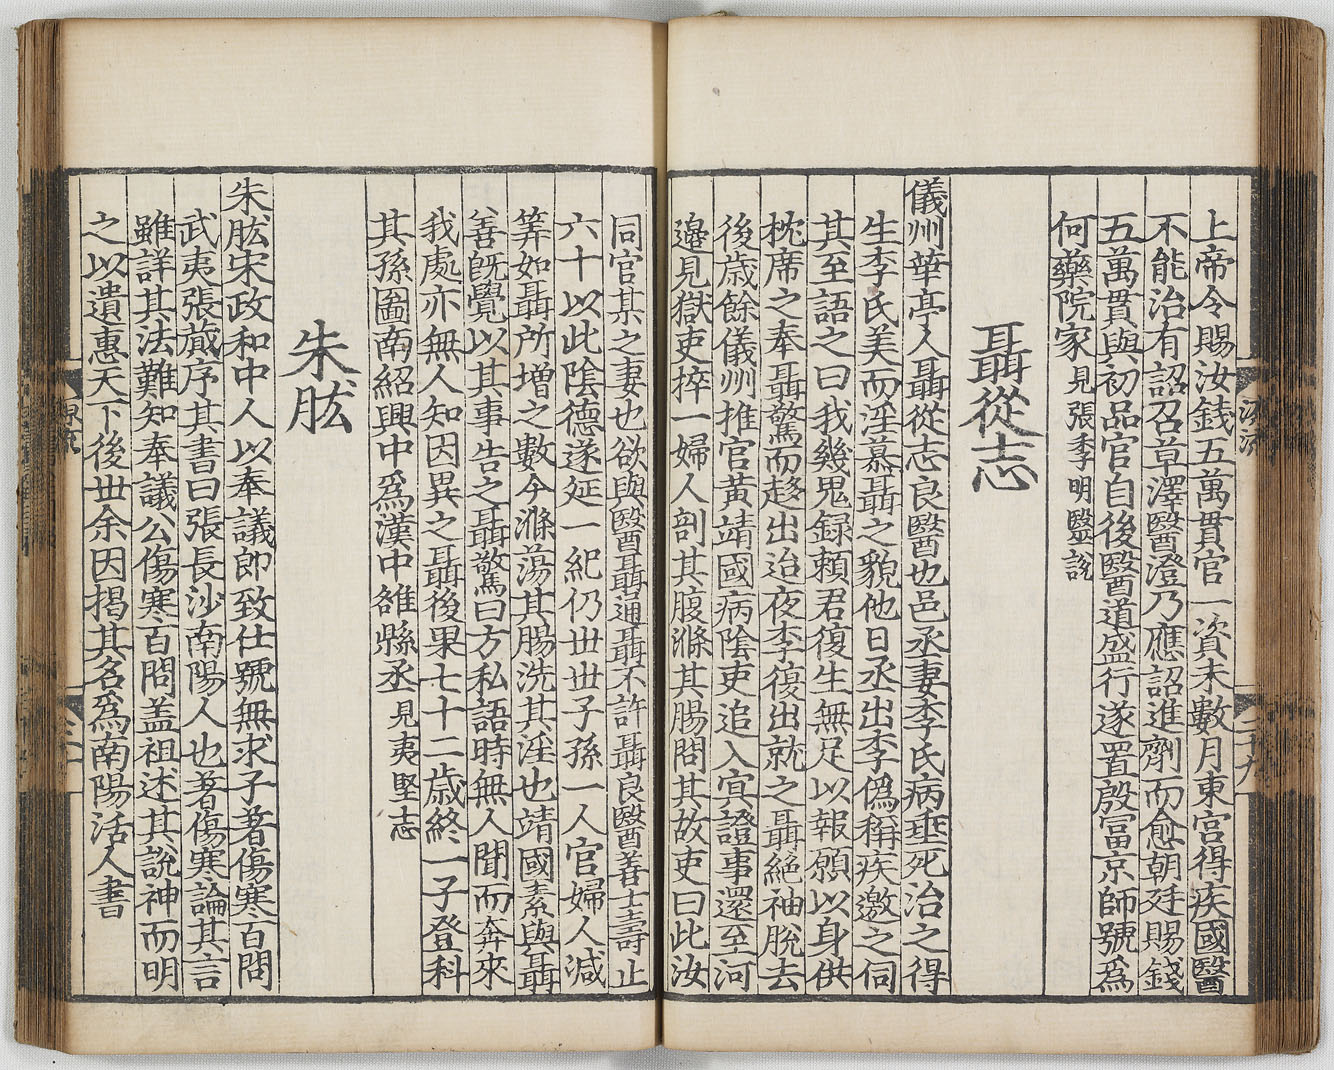 上帝令賜汝錢五萬貫官一資未數月東宮得疾國醫
不能治有詔召草澤醫澄乃應詔進劑而愈朝廷賜錢
五萬貫與初品官自後醫道盛行遂置殷冨京師號爲
何藥院家見張季明醫說
聶從志
儀州華亭人聶從志良醫也邑丞妻李氏病垂死治之得
生李氏美而淫慕聶之貌他日丞出李僞稱疾邀之伺
其至語之曰我幾鬼録頼君復生無足以報願以身供
枕席之奉聶驚而趍出迨夜李復出就之聶絕袖脫去
後歳餘儀州推官黃靖國病陰吏追入㝠證事還至河
邉見獄吏捽一婦人剖其腹滌其腸問其故吏曰此汝
同官某之妻也欲與醫聶通聶不許聶良醫善士壽止
六十以此陰德遂延一紀仍世世子孫一人官婦人減
筭如聶所增之數今滌蕩其腸洗其淫也靖國素與聶
善旣覺以其事告之聶驚曰方私語時無人聞而奔來
我處亦無人知因異之聶後果七十二歳終一子登科
其孫圖南紹興中爲漢中雒縣丞見夷堅志
朱肱
朱肱宋政和中人以奉議郎致仕號無求子著傷寒百問
武夷張蕆序其書曰張長沙南陽人也著傷寒論其言
雖詳其法難知奉議公傷寒百問盖祖述其說神而明
之以遺惠天下後世余因揭其名爲南陽活人書
源流
二十九